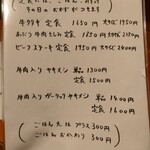 定食には、ごはん、みそ汁
その日のおかずがつきます
牛タタキ 定食 1650円 大サイズ1950円
あぶり牛肉さしみ 定食 1850円 大サイズ2150円
ビーフステーキ 定食 1950円 大サイズ2400円
牛肉入り ヤキメシ 単品 1300円
定食 1500円
牛肉入り ガーリックヤキメシ 単品 1400円
定食 1600円
ごはん大は プラス 300円
ごはんおかわり 300円